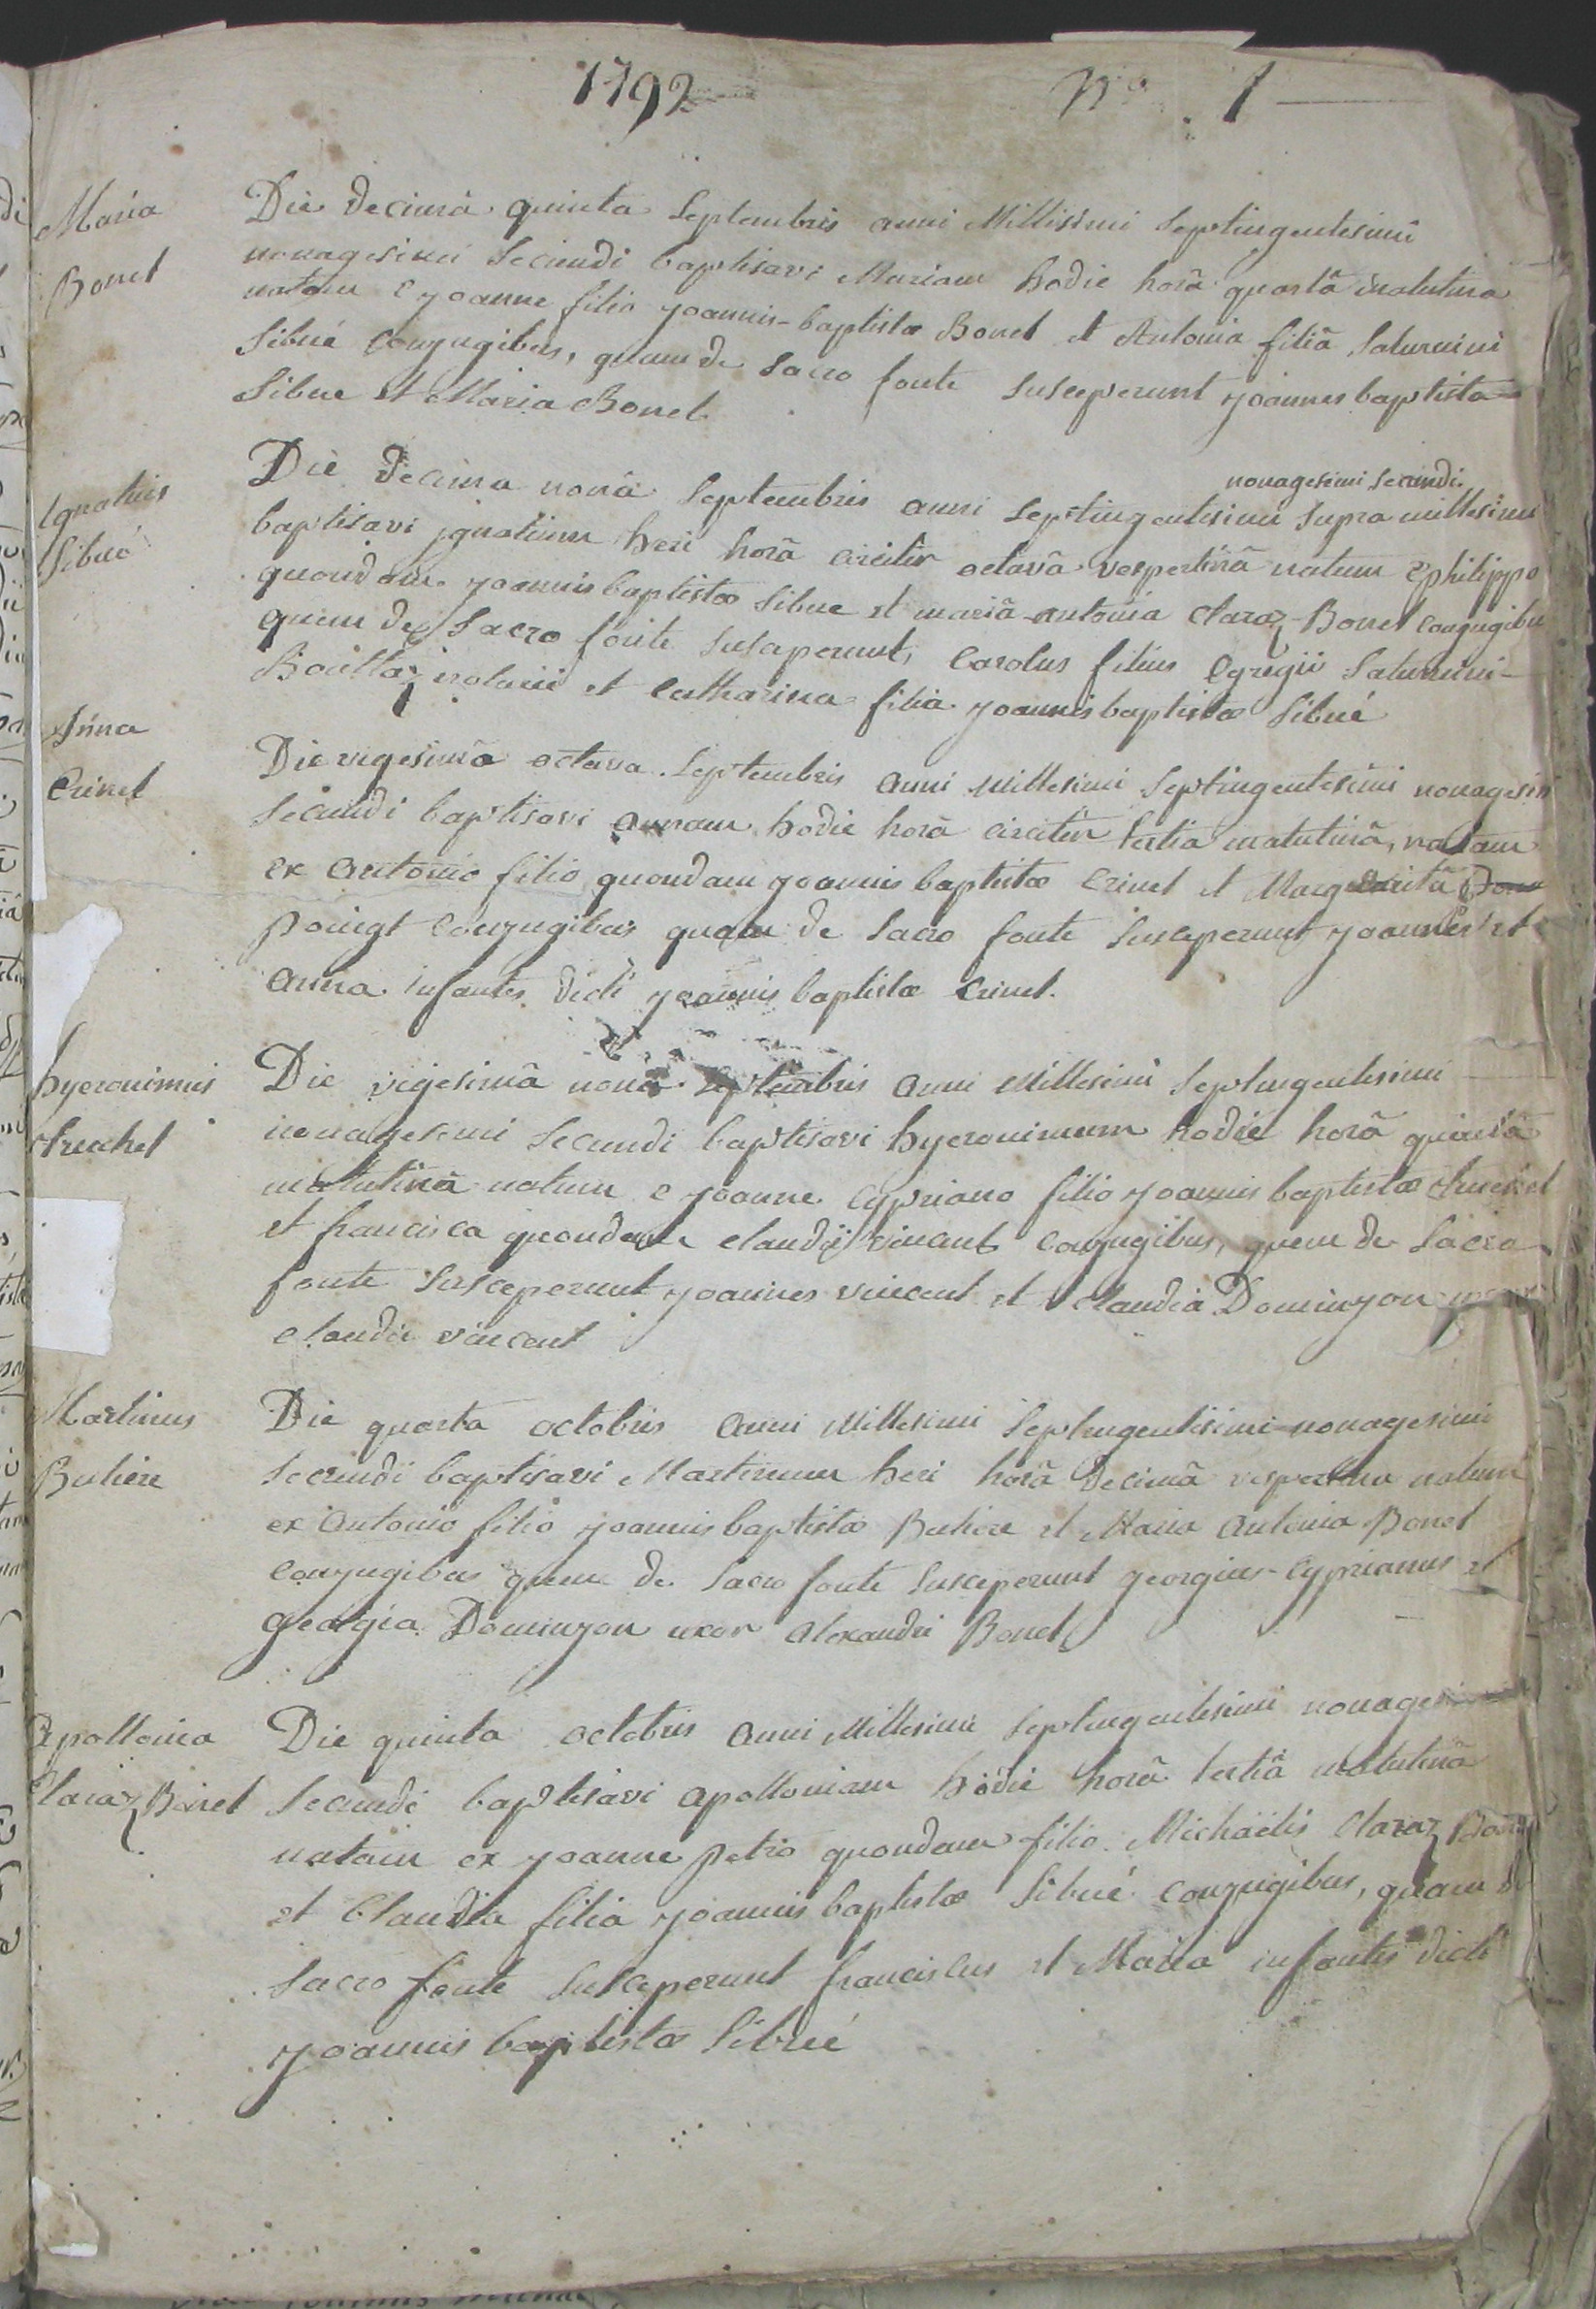 1792 N.o 1
Maria
Bonet
Die decimâ quinta Septembris anni Millisimi Septingentesimi
nonagesimi Secundi baptisavi Mariam hodie horâ quartâ matutina
natam e joanne filio joannis-baptistæ Bonet et Antonia filiâ Saturnini
Sibué Conjugibus, quam de Sacro fonte Susceperunt joannes baptista
Sibue et Maria Bonet
Ignatius
Sibué
nonagesimi Secundi.
Die decima nonâ Septembris anni Septingentesimi Supra millesimi
baptisavi ignatium heri horâ circiter octavâ vespertinâ natum e philippo
quondam joannis baptistæ Sibue et mariâ-antonia Claraz-Bonet conjugibu
quem de Sacro fonte Susceperunt, Carolus filius Egregii Saturnini
notarii et Catharina filia joannis baptistæ Sibué
Anna
Crinel
Die vigesimâ octava Septembris anni Millesimi Septingentesimi nonagesim
Secundi baptisavi annam hodie horâ circiter tertia matutinâ, natam
ex Antonio filio quondam joannis baptistæ Crinel et Margaritâ
Pointgt Conjugibus quam de Sacro fonte Susceperunt joannes et
anna infantes dicti joannis baptistæ Crinel.
hyeronimus
Truchet
Die vigesimâ nonâ Septembris anni Millesimi Septingentesimi
nonagesimi Secundi baptisavi hyeronimum hodie horâ quintâ
matutinâ natum e joanne Cypriano filio joannis baptistæ Truchet
et francisca quondam claudii vincent Conjugibus, quem de Sacro
fonte Susceperunt joannes vincent et Claudia Dominjon
claudii vincent
Martinus
Buliere
Die quarta octobris anni Millesimi Septingentisimi nonagesimi
Secundi baptisavi Martinum heri horâ decimâ vespertina natum
ex Antonio filio joannis baptistæ Buliere et Maria Antonia Bonet
Conjugibus quem de Sacro fonte Susceperunt georgius-Cyprianus et
georgia Dominjon uxor Alexandri Bonet
Apollonia
Claraz Bonet
Die quinta octobris anni Millesimi Septingentesimi nonagesimi
Secundi baptisavi apolloniam hodie horâ tertiâ matutinâ
natam ex joanne petro quondam filio Michaëlis Claraz Bonet
et Claudia filia joannis baptistæ Sibué Conjugibus, quam de
Sacro fonte Susceperunt franciscus et Maria infantes dicti
joannis baptistæ Sibué